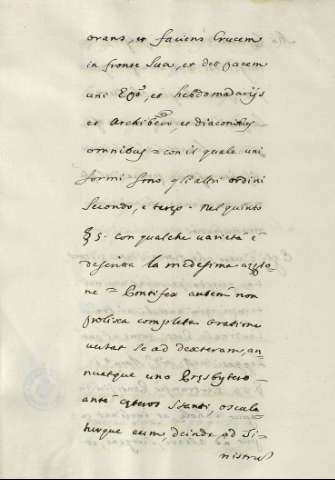 orans, et faciens Crucem
in fronte sua, et det pacem
uni Epõ, et hebdomadarijs
et Archi et diaconibus
omnibus = con il quale uni
formi sono gli altri ordini
secondo, e terzo. Nel quinto
§ 5. con qualche varietà è
descritta la medesima azzio
ne = Pontifex autem non
prolixa completa oratione
vertat se ad dexteram, an
nuatque uno Presbytero
ante ceteros stanti, oscule
turque eum deinde ad si-
nistrũ